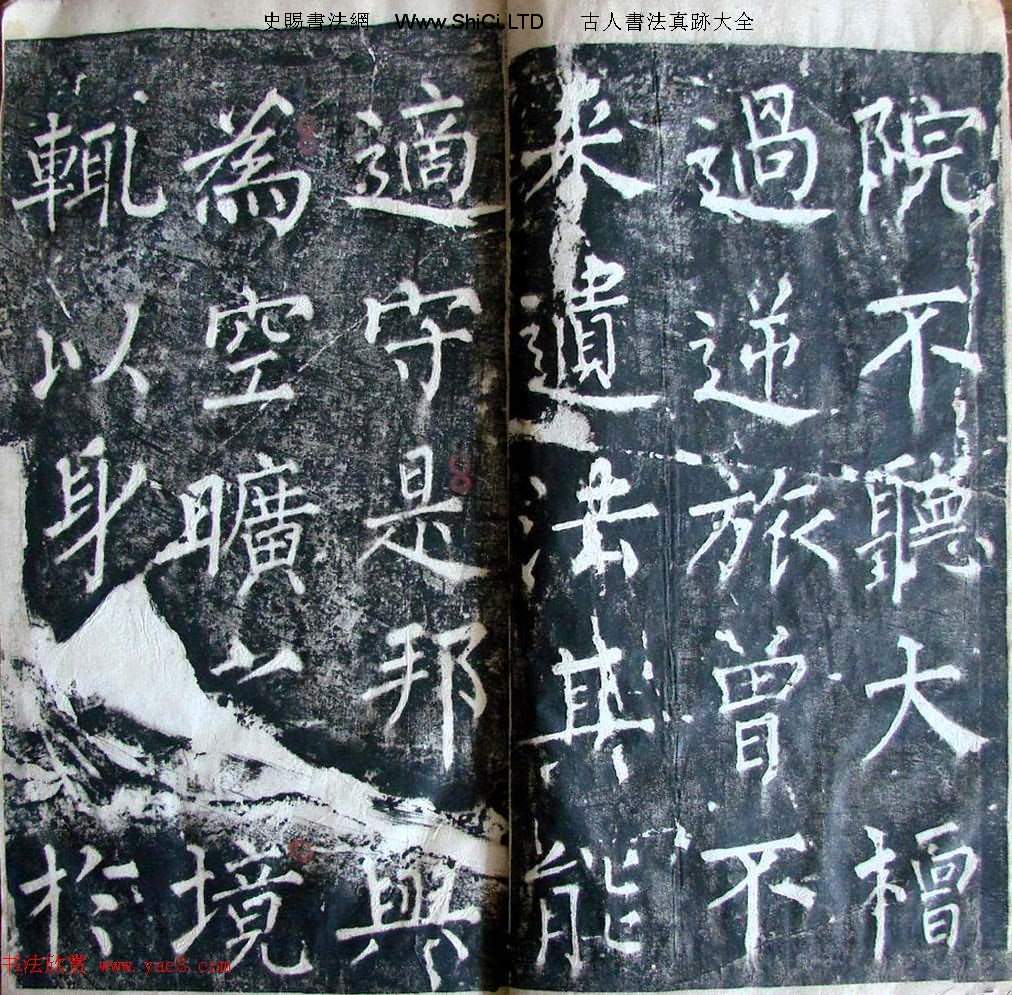 史賜書法網 Www.ShiCi.LTD 古人書法真跡大全
院不聽大檀
過逆旅曾不
来遺法其能
適守是邦與
為空曠之境
輒以身於
书法欣赏 www.yac8.com